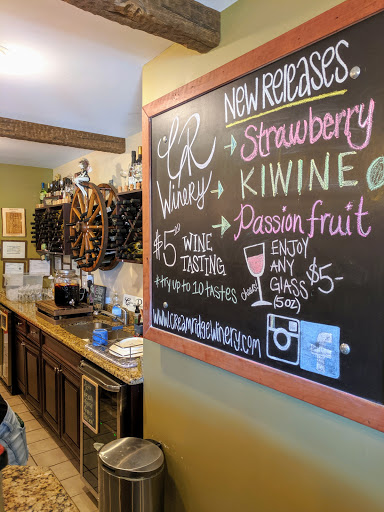 NEW RELEASES
CR
Winery
→ Strawberry
→ KIWINE
→ Passion fruit
$5 WINE
TASTING
*try up to 10 tastes
cheers!
ENJOY
ANY
GLASS $5-
(5oz)
www.Creamridgewinery.com